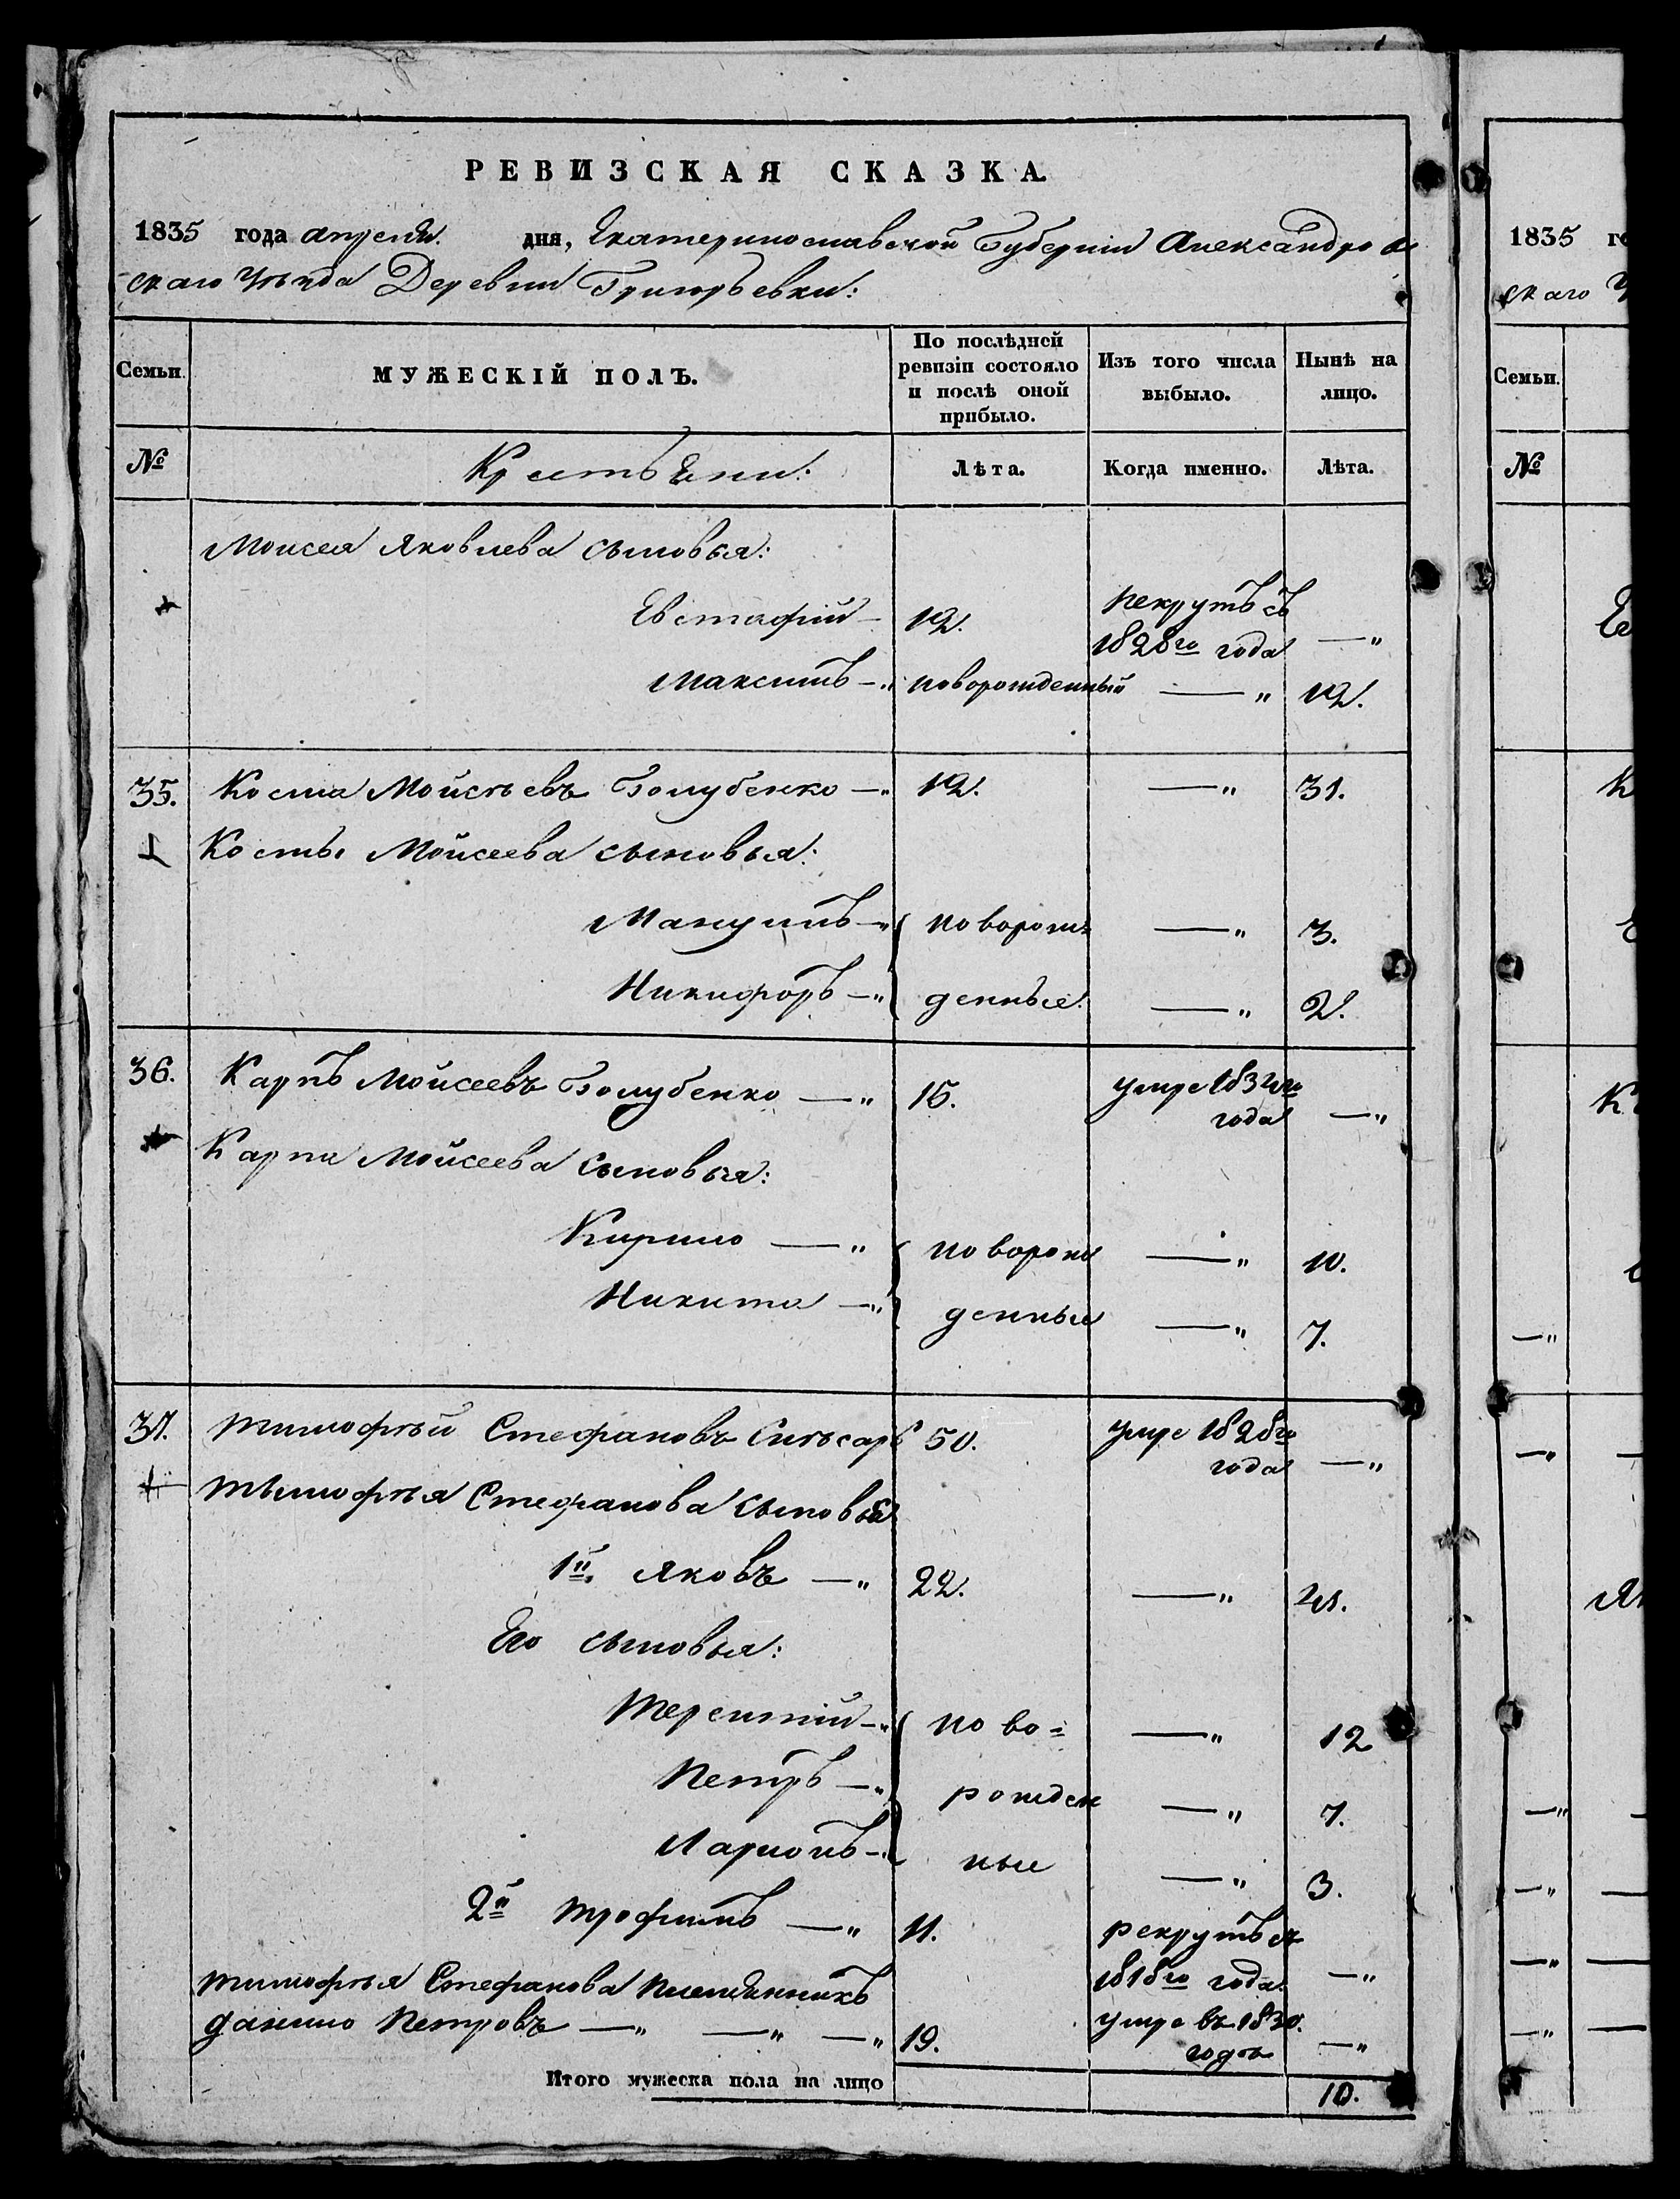 РЕВИЗСКАЯ СКАЗКА.
1835 года апреля. дня, Екатеринославской Губерніи Александров
скаго Уѣзда Деревни Григорьевки:
Семьи. МУЖЕСКІЙ ПОЛЪ. По послѣдней ревизіи состояло и послѣ оной прибыло. Изъ того числа выбыло. Нынѣ на лицо.
№ Крестьяни: Лѣта. Когда именно. Лѣта.
Моисея Яковлева сыновья:
Евстафий — 12. рекрутъ съ 1828го года —"
Максимъ —" новорожденный —" 12.
35. Косма Мойсѣевъ Голубенко —" 12. —" 31.
Космы Мойсеева сыновья:
Мануилъ —" новорож —" 3.
Никифоръ —" денные. —" 2.
36. Карпъ Мойсеевъ Голубенко —" 15. умре 1834го года —"
Карпа Мойсеева сыновья:
Кирило —" новорож —" 10.
Никита —" денные —" 7.
37. Тимофѣй Стефановъ Слѣсарь 50. умре 1828го года —"
Тимофѣя Стефанова сыновья
1й. Яковъ —" 22. —" 41.
Его сыновья:
Терентий —" ново= —" 12
Петръ —" рожден —" 7.
Ларионъ —" ные —" 3.
2й Трофимъ —" 11. рекрутъ съ 1818го года. —"
Тимофѣя Стефанова племянникъ
Данило Петровъ —" —" —" 19. умре въ 1830. годѣ —"
Итого мужеска пола на лицо 10.
1835 го
скаго У
Семьи.
№